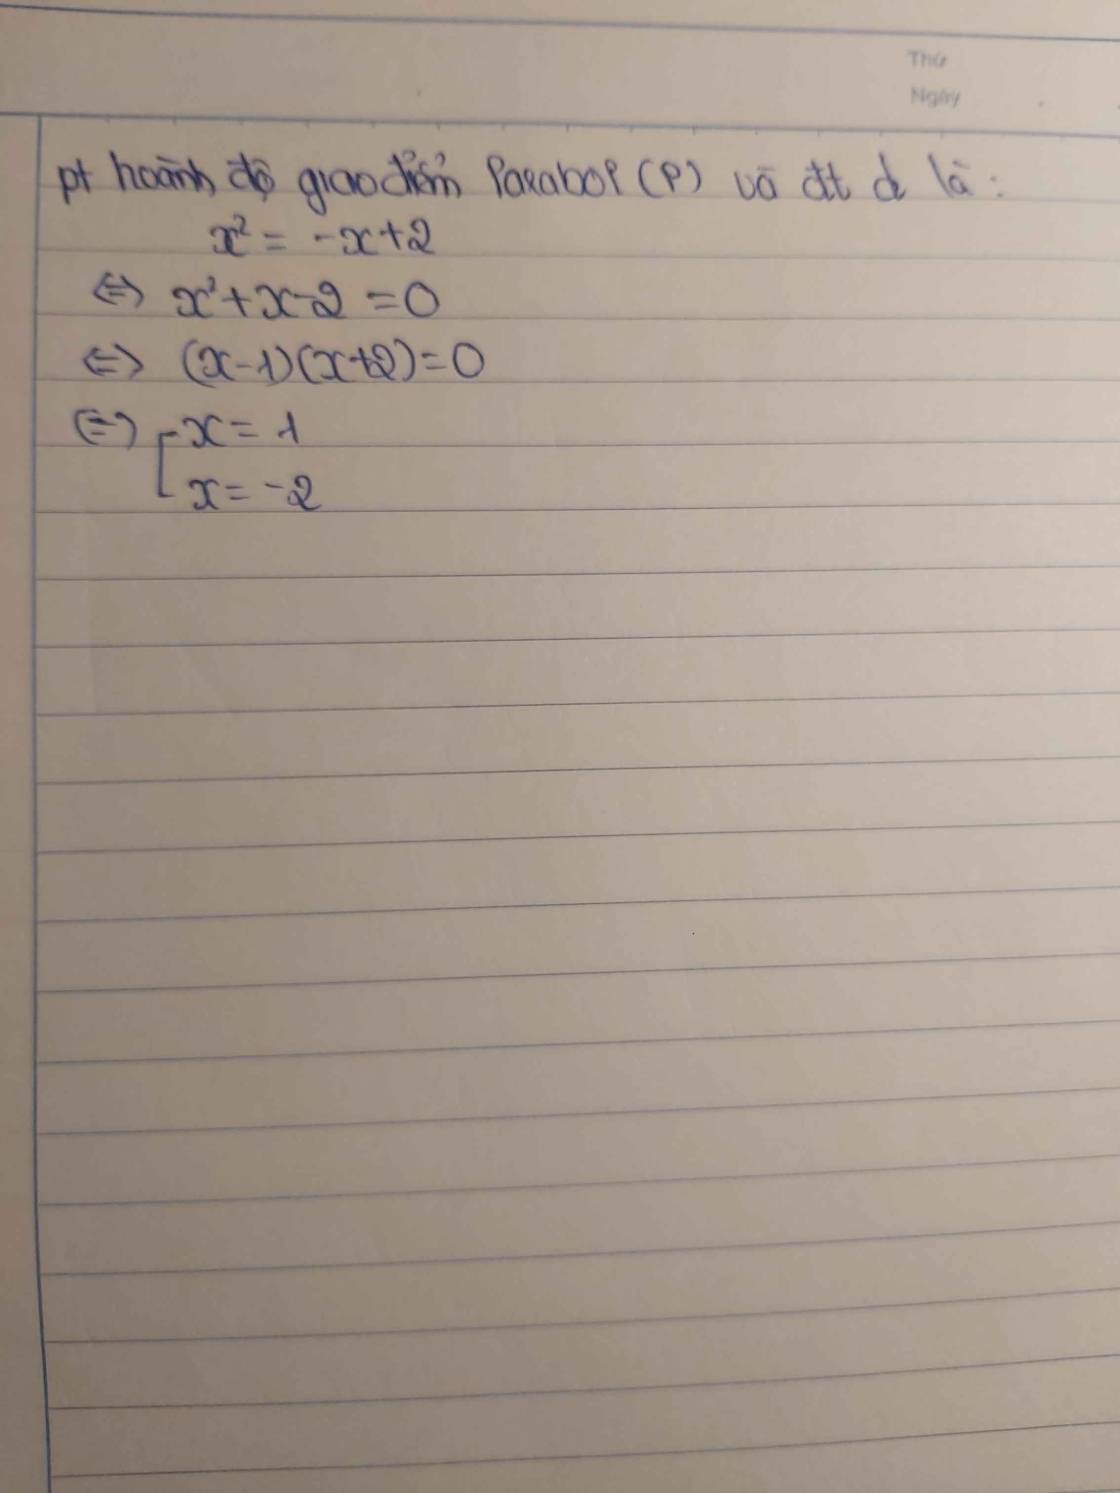 Thứ
Ngày
pt hoành độ giao điểm Parabol (P) và đt d là:
x² = -x+2
⇔ x²+x-2 =0
⇔ (x-1)(x+2)=0
⇔ [ x= 1
x= -2